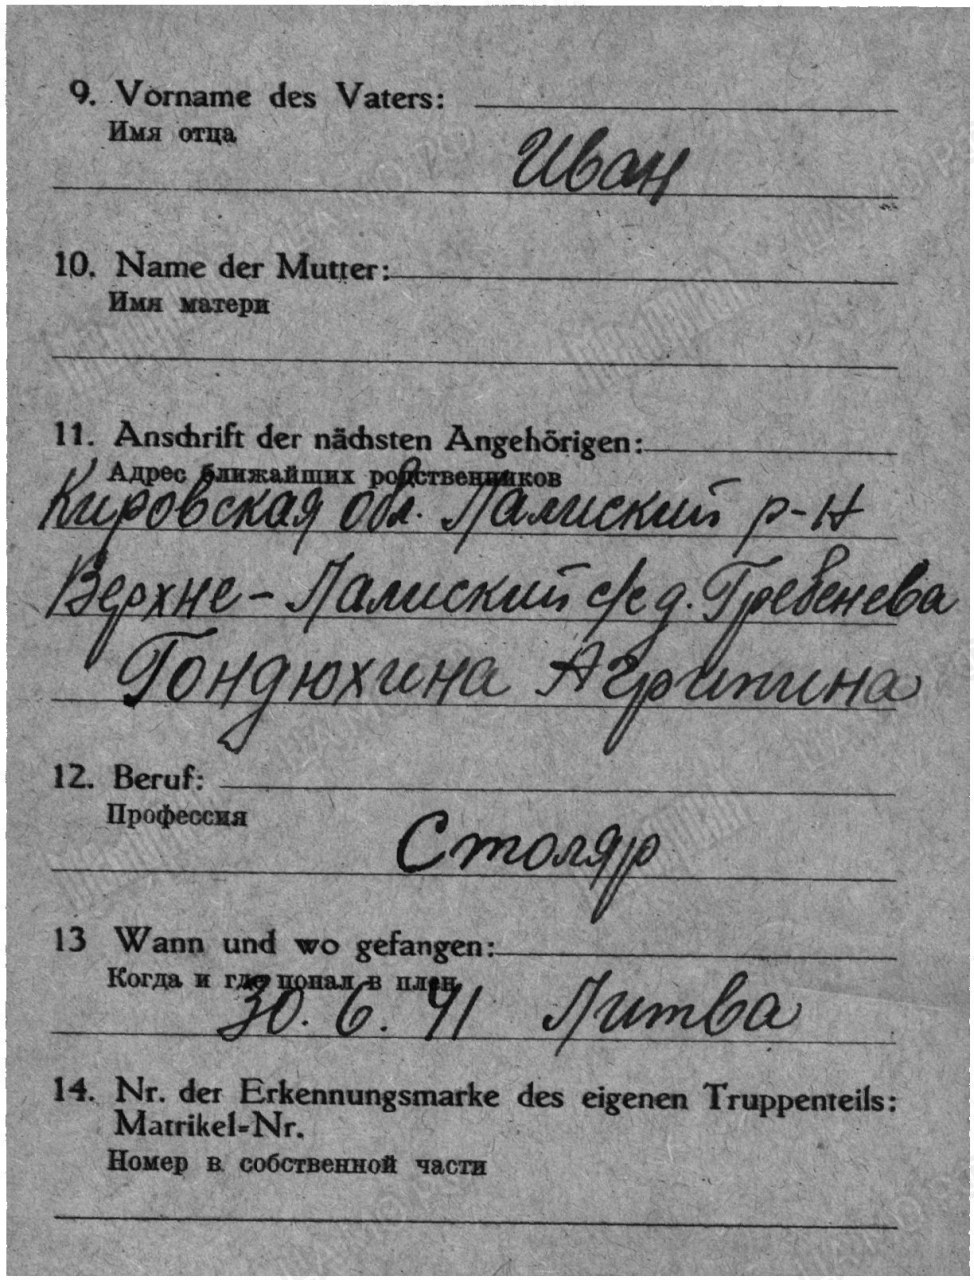 9. Vorname des Vaters:
Имя отца
Иван
10. Name der Mutter:
Имя матери
11. Anschrift der nächsten Angehörigen:
Адрес ближайших родственников
Кировская обл. Лалмский р-н
Верхне-Лалмский с/с д. Гребенева
Гондюхина Агрипина
12. Beruf:
Профессия
Столяр
13 Wann und wo gefangen:
Когда и где попал в плен
30. 6. 41 Литва
14. Nr. der Erkennungsmarke des eigenen Truppenteils:
Matrikel=Nr.
Номер в собственной части